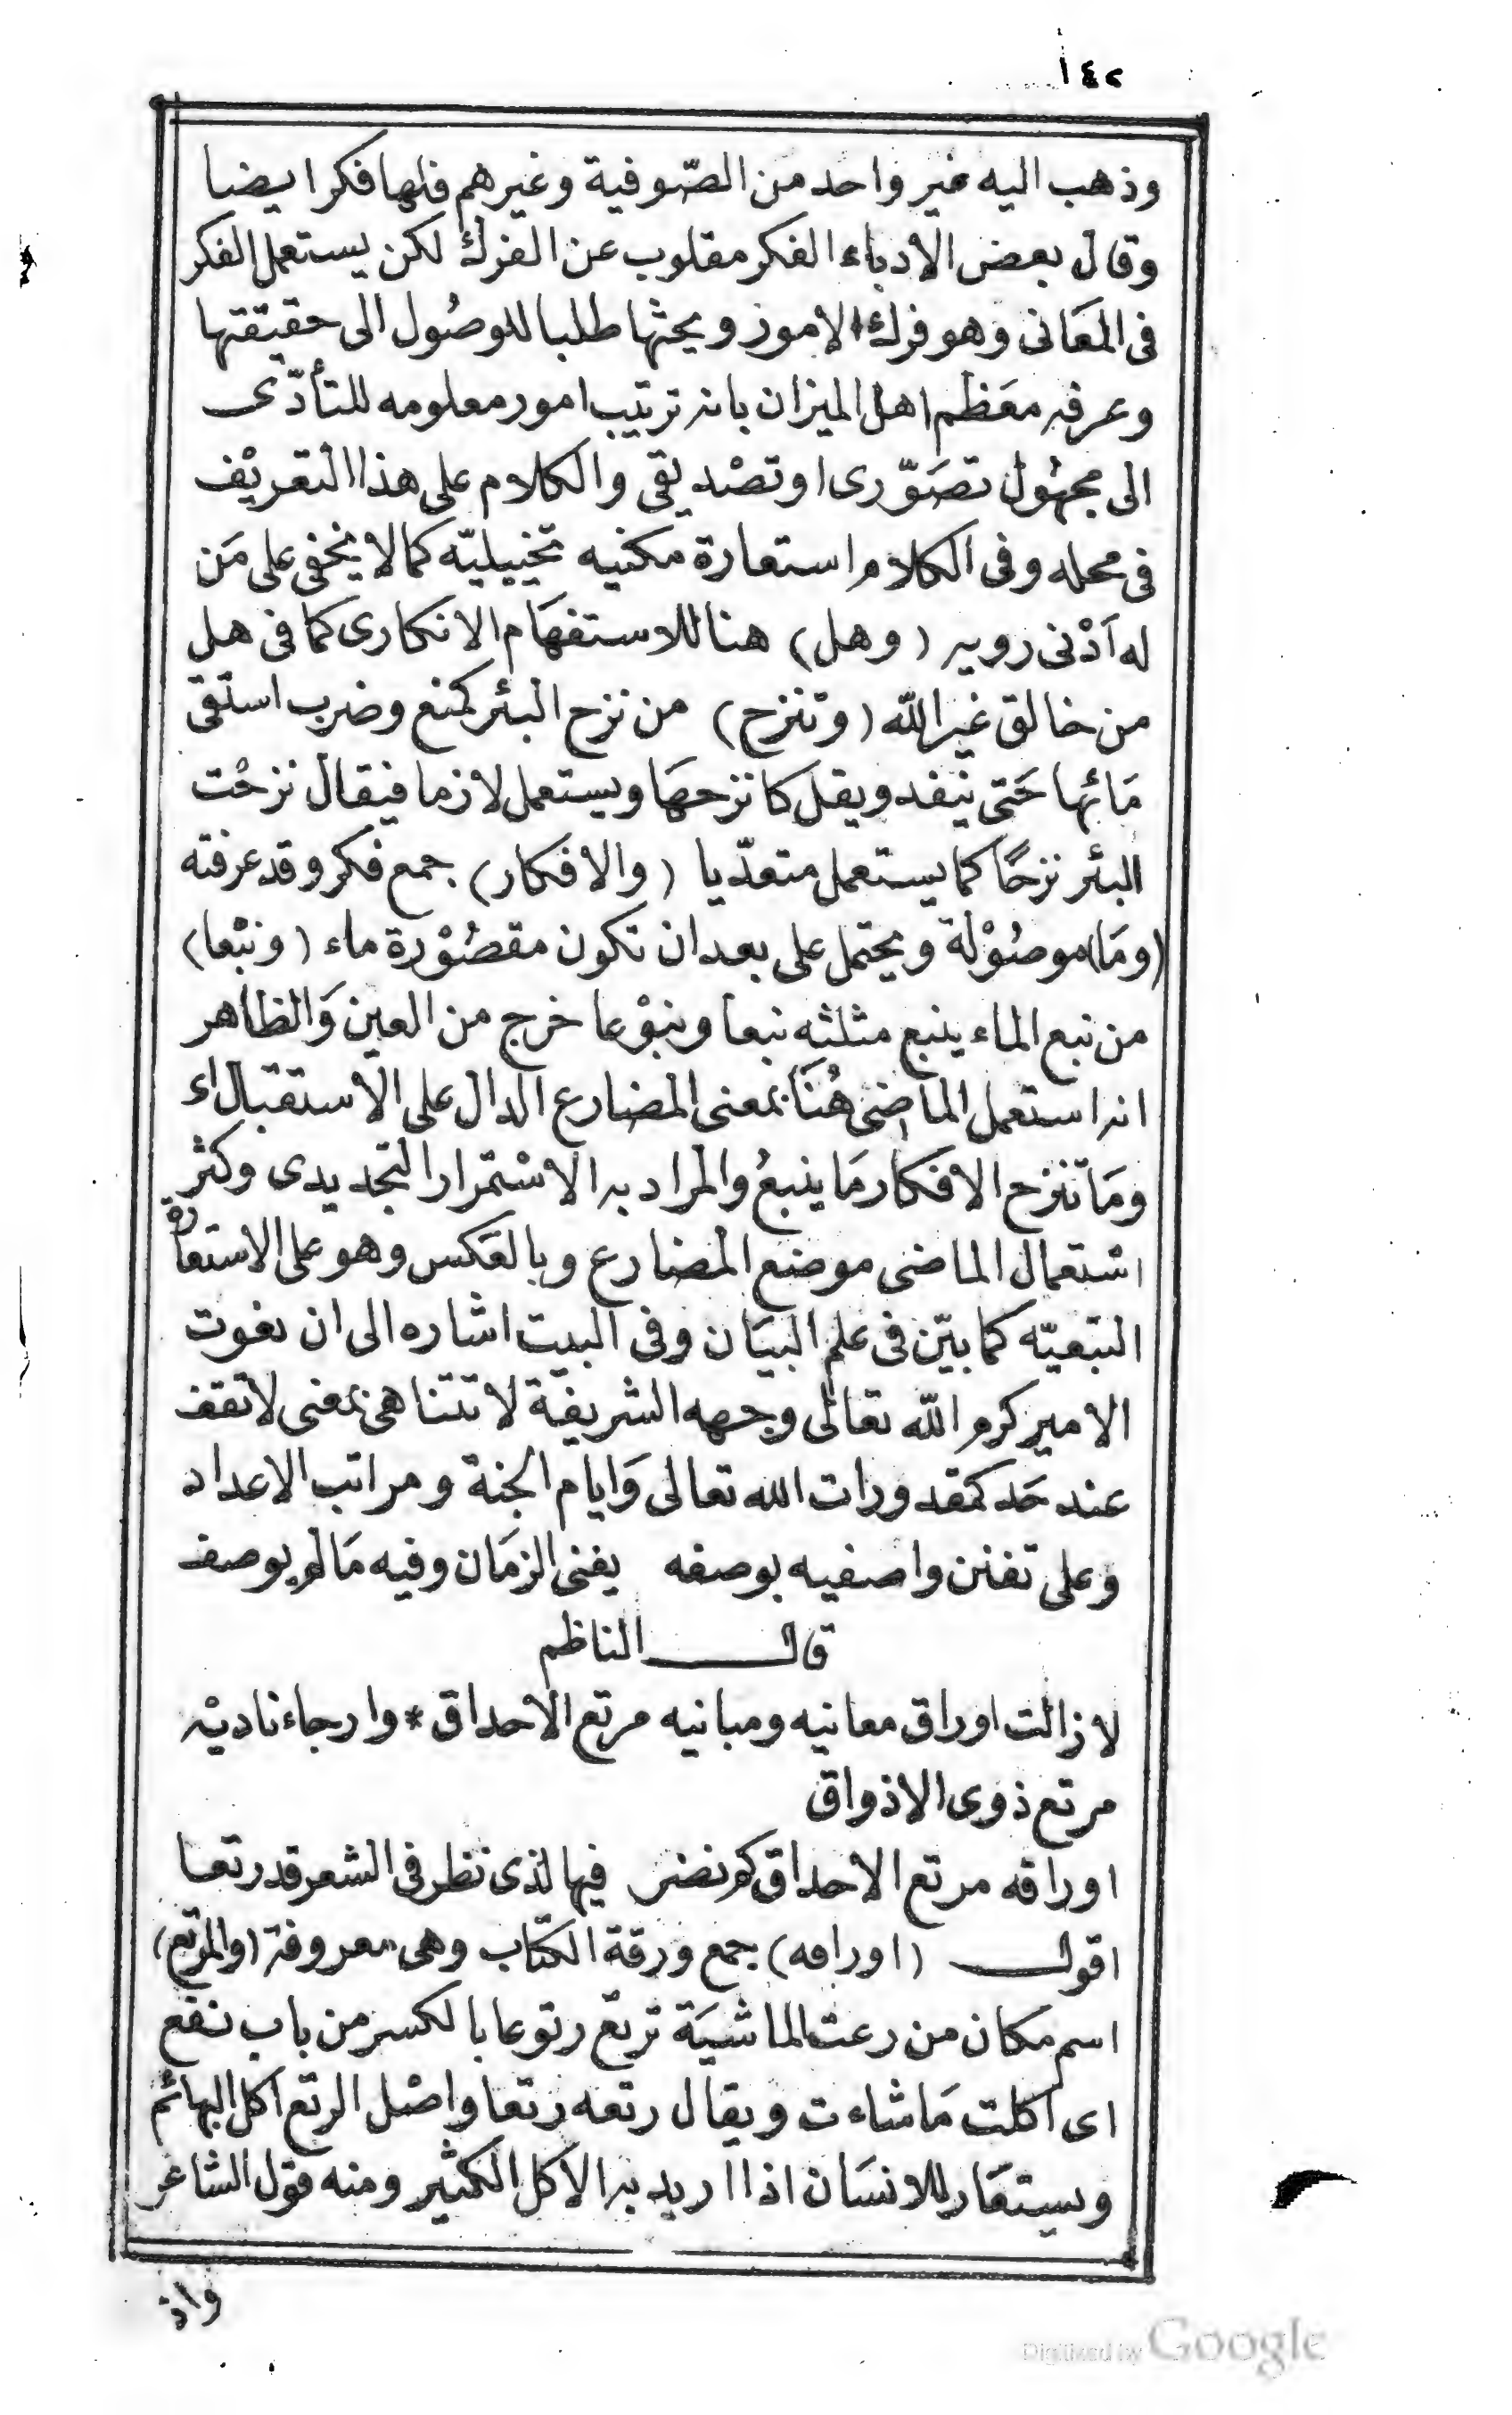 ١٤٢
وذهب اليه غير واحد من الصّوفية وغيرهم فلها فكر ايضا
وقال بعض الادباء الفكر مقلوب عن الفرك لكن يستعمل الفكر
فى المعَانى وهو فرك الامور وبحثها طلبا للوصُول الى حقيقتها
وعرفه معَظم اهل الميزان بانه ترتيب امور معلومه للتأدّى
الى مجهُول تصَوّرى او تصْديقى والكلام على هذا التعريْف
فى محله وفى الكلام استعارة مكنيه تخييليّه كما لا يخفى على مَن
له آدْنى رويه (وهل) هنا للاستفهَام الانكارى كما فى هل
من خالق غير الله (وتنزح) من نزح البئر كمنع وضرب استقى
مَائها حَتى ينفد ويقل كانزحهَا ويستعمل لازما فيقال نزحْت
البئر نزحًا كما يستعمل متعدّيا (والافكار) جمع فكر وقد عرفته
(ومَا) موصُوْلة ويحتمل على بعد ان تكون مقصُوْرة ماء (ونبْعا)
من نبع الماء ينبع مثلثه نبعا ونبوْعا خرج من العين وَالظاهر
انه استعمل الماضى هُنَا بمعنى المضارع الدال على الاستقبال اء
ومَا تنزح الافكار مَا ينبعُ والمراد به الاسْتمرار التجديدى وكثر
اسْتعمال الماضى موضع المضارع وبالعَكس وهو على الاستعارة
التبعيّه كما بيّن فى علم البيَان وفى البيت اشاره الى ان نعوت
الامير كرم الله تعالى وجهه الشريفة لا تتناهى بمعنى لا تقف
عند حَد كمقدورات الله تعالى وَايام الجنة ومراتب الاعداد
وعلى تفنن واصفيه بوصفه يفنى الزمَان وفيه مَا لم يوصف
قال الناظم
لا زالت اوراق معانيه ومبانيه مرتع الاحداق * وارجاء ناديْه
مرتع ذوى الاذواق
اوراقه مرتع الاحداق كم نضر فيها لذى نظر فى الشعر قد رتعا
اقول (اوراقه) جمع ورقة الكتاب وهى معروفة (والمرتع)
اسم مكان من رعت الماشيَة ترتع رتوعا بالكسر من باب نفع
اى اكلت مَا شاءت ويقال رتعه رتعا واصْل الرتع اكل البهائم
ويستعَار للانسَان اذا اريد به الاكل الكثير ومنه قول الشاعر
واذ
Digitized by Google